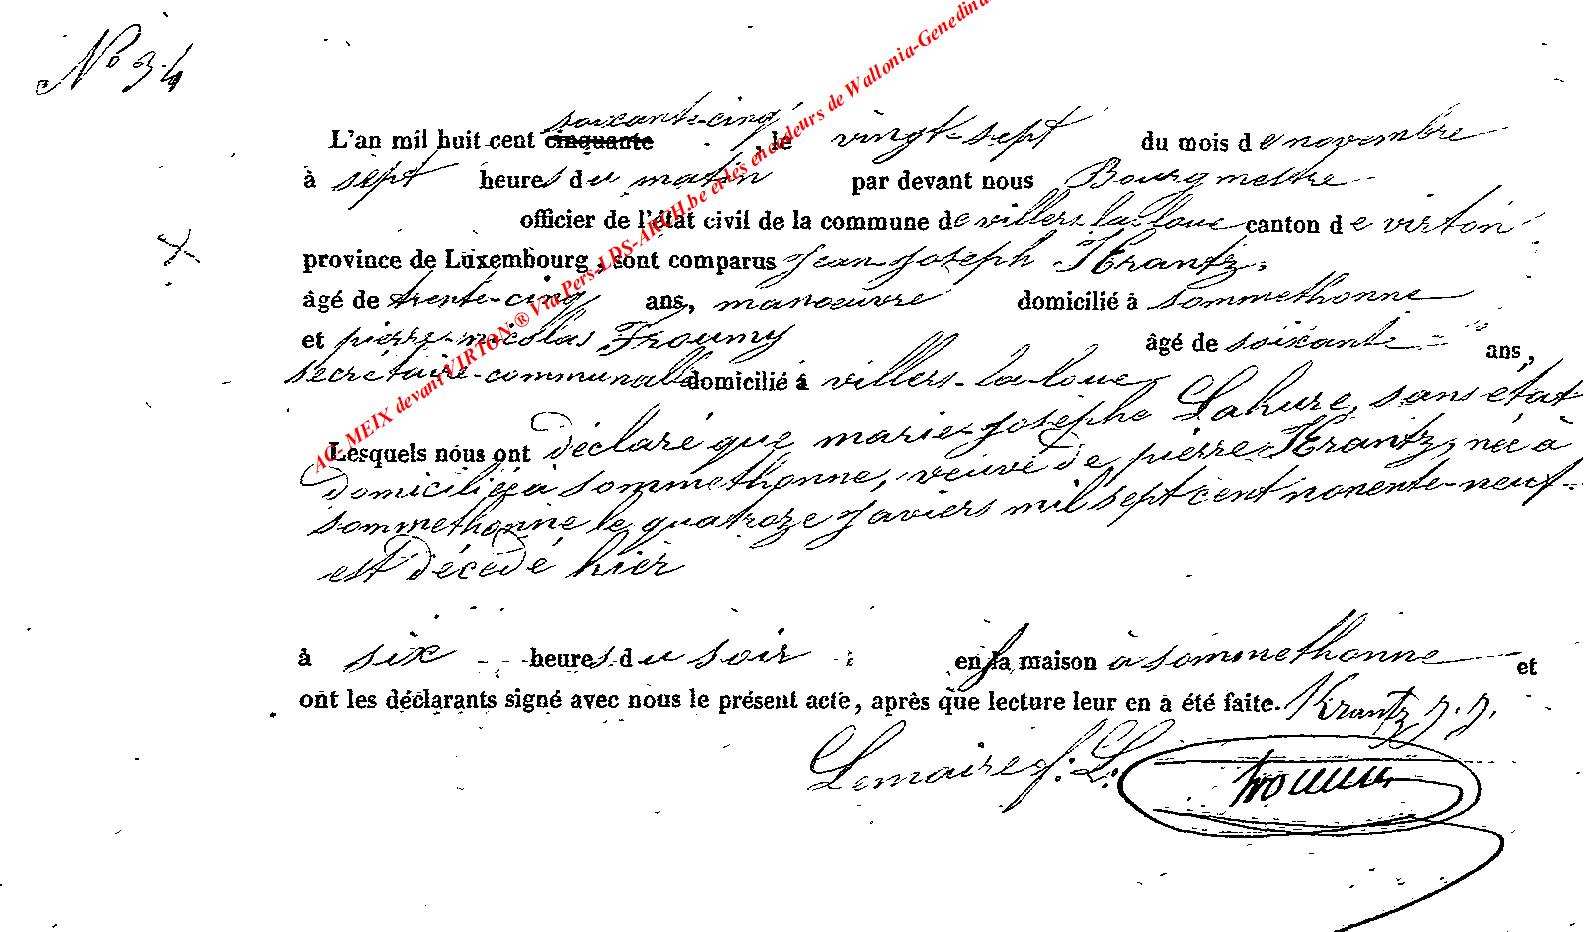 N° 34
L'an mil huit cent cinquante soixante-cinq, le vingt-sept du mois de novembre
à sept heures du matin par devant nous Bourgmestre
officier de l'état civil de la commune de villers-la-loue canton de virton
province de Luxembourg, sont comparus Jean Joseph Krantz,
âgé de trente-cinq ans, manoeuvre domicilié à sommethonne
et pierre-nicolas Froumy âgé de soixante ans,
secrétaire-communal domicilié à villers-la-loue
Lesquels nous ont déclaré que marie-Josèphe Lahure, sans état
domiciliée à sommethonne, veuve de pierre Krantz, née à
sommethonne le quatroze Janviers mil sept cent nonente-neuf
est décédé hier
à six heures du soir en sa maison à sommethonne et
ont les déclarants signé avec nous le présent acte, après que lecture leur en à été faite. Krantz J. J.
Lemaire f: L:
AC MEIX devant VIRTON ® Via Pers-LDS-ARCH.be et les encodeurs de Wallonia-Genedina